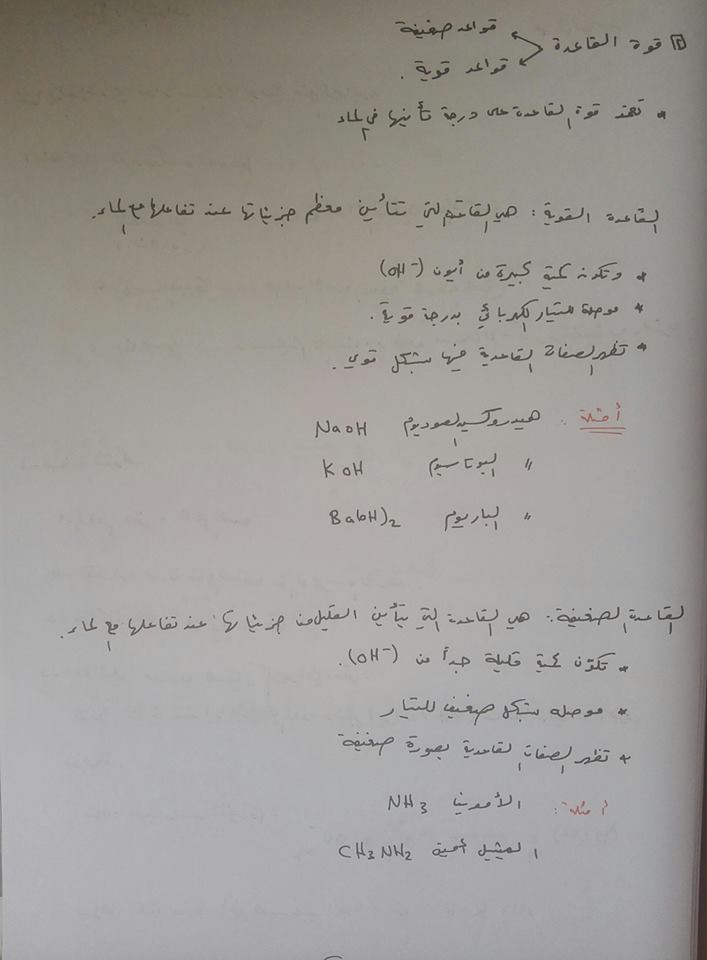 قوة القاعدة
قواعد ضعيفة
قواعد قوية .
* تعتمد قوة القاعدة على درجة تأينها في الماء
القاعدة القوية : هي القاعدة التي تتأين معظم جزيئاتها عند تفاعلها مع الماء .
* وتكون كمية كبيرة من أيون (OH⁻)
* موصلة للتيار الكهربائي بدرجة قوية .
* تظهر الصفات القاعدية فيها بشكل قوي .
أمثلة : هيدروكسيد الصوديوم NaOH
" البوتاسيوم KOH
" الباريوم Ba(OH)2
القاعدة الضعيفة : هي القاعدة التي يتأين القليل من جزيئاتها عند تفاعلها مع الماء .
* تكوّن كمية قليلة جداً من (OH⁻) .
* موصله بشكل ضعيف للتيار
* تظهر الصفات القاعدية بصورة ضعيفة
أمثلة : الأمونيا NH3
الميثيل أمين CH3NH2